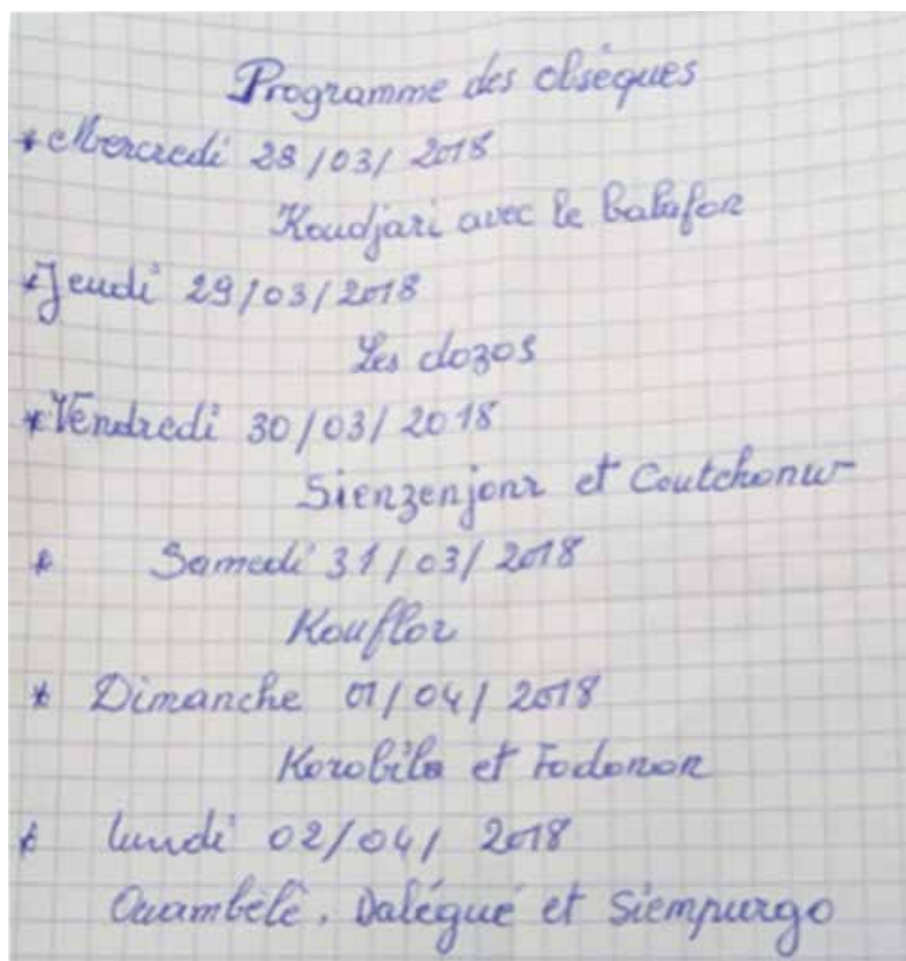 Programme des obséques
* Mercredi 28/03/2018
Koudjari avec le balafon
* Jeudi 29/03/2018
Les dozos
* Vendredi 30/03/2018
Sienzenjonr et Coutchonw
* Samedi 31/03/2018
Kouflor
* Dimanche 01/04/2018
Korobila et Fodonon
* lundi 02/04/2018
Ouambélè, Dalégué et Siempurgo